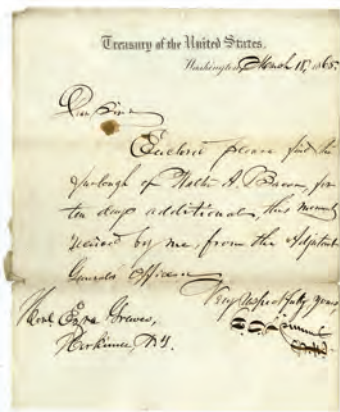 Treasury of the United States.
Washington, March 18, 1865.
Dear Sir
Enclosed please find the
furlough of Walter A. Bacon, for
ten days additional, this moment
received by me, from the Adjutant
General's Office
Very respectfully yours,
Hon. Ezra Graves,
Herkimer, N.Y.